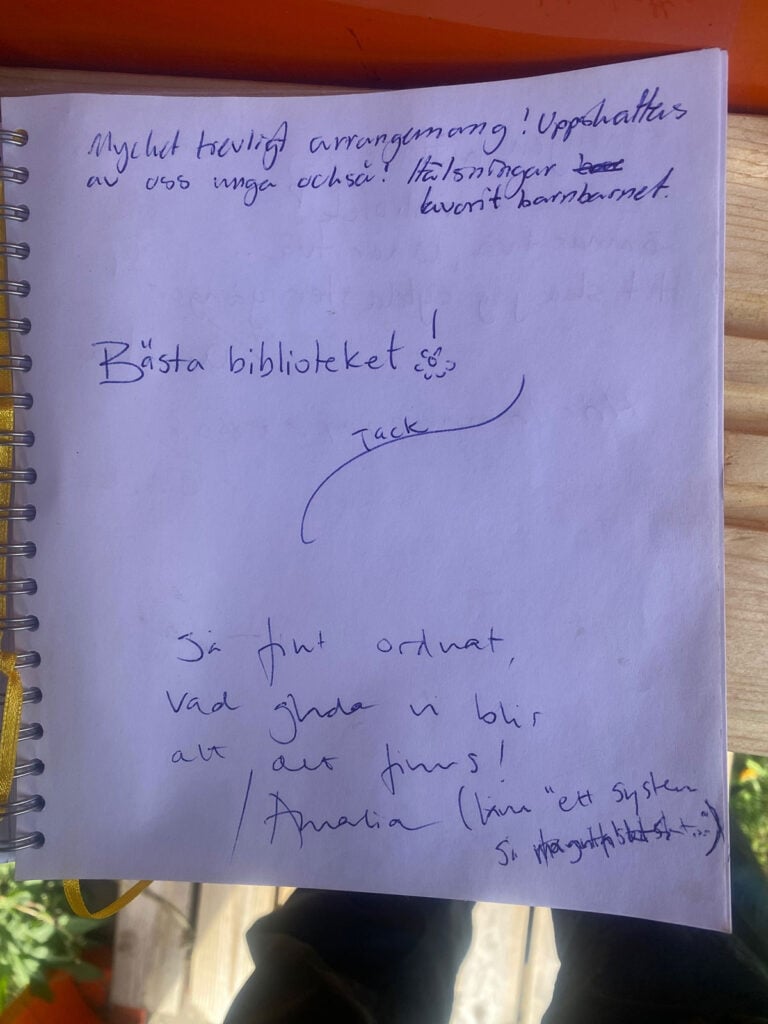 Mycket trevligt arrangemang! Uppskattas
av oss unga också! Hälsningar
favorit barnbarnet.
Bästa biblioteket!
Tack
Så fint ordnat,
vad glada vi blir
att det finns!
/Amalia ( "ett system
så